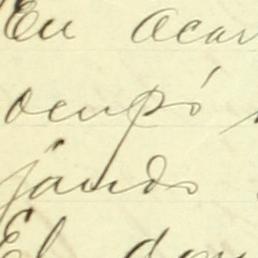 En acar
ocupó
jando
El don